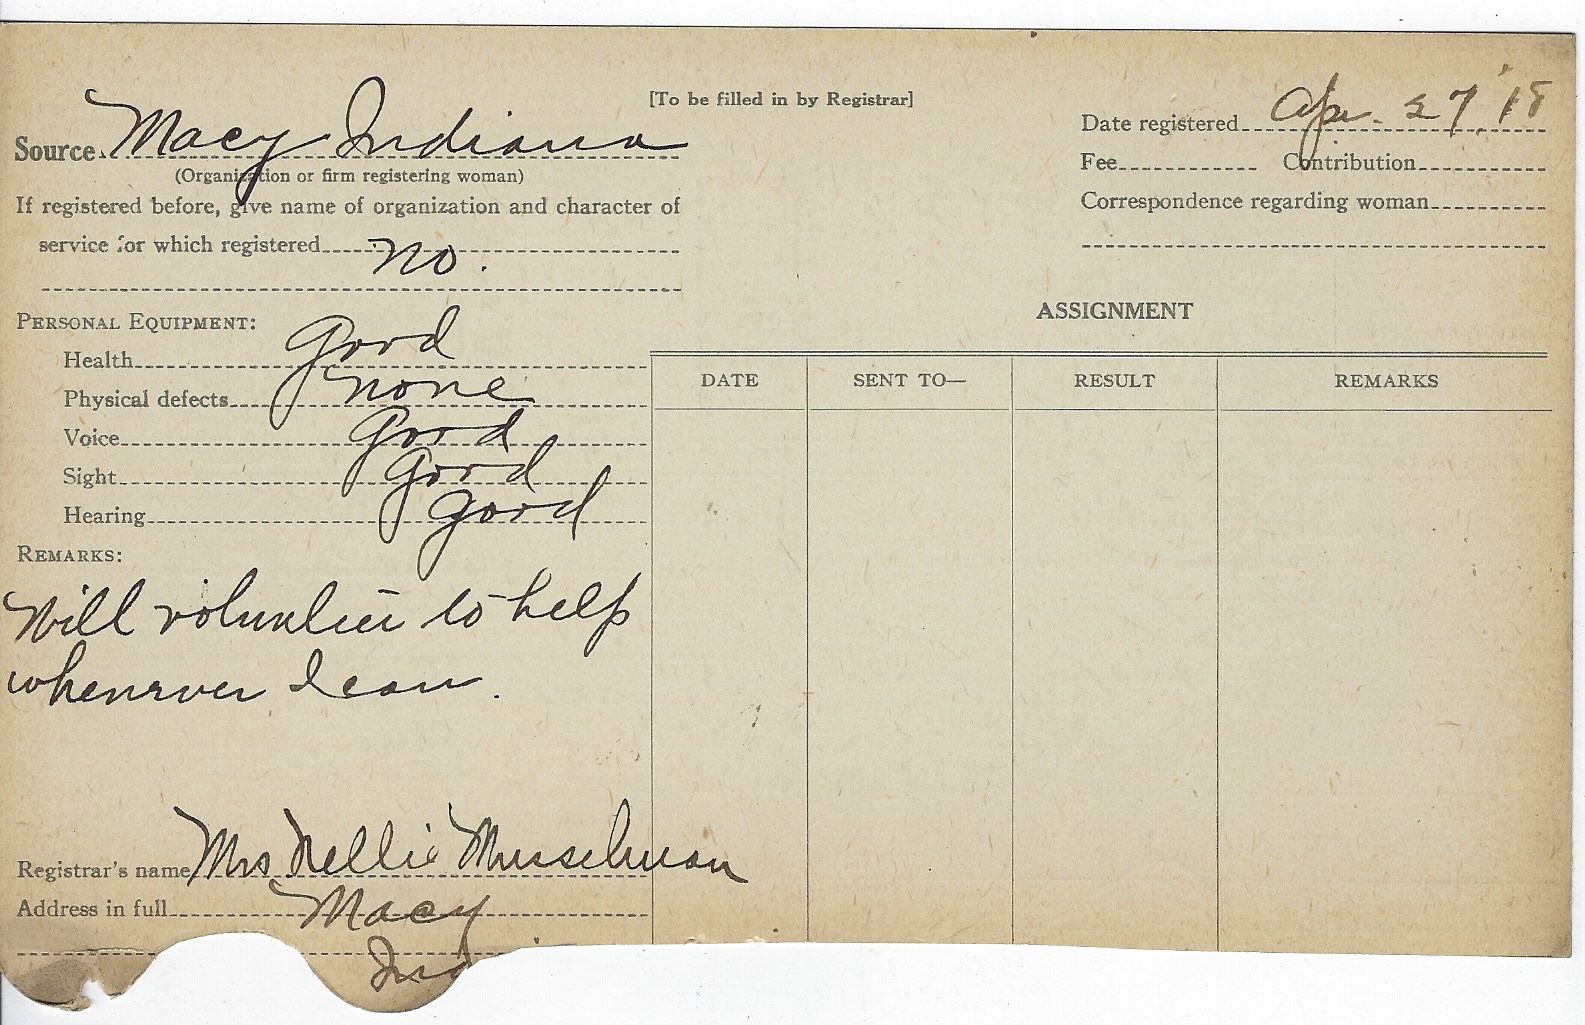 [To be filled in by Registrar]
Source Macy Indiana
(Organization or firm registering woman)
If registered before, give name of organization and character of
service for which registered no.
Date registered Apr. 27, '18
Fee Contribution
Correspondence regarding woman
PERSONAL EQUIPMENT:
Health Good
Physical defects none
Voice Good
Sight Good
Hearing Good
REMARKS:
Will volunteer to help
whenever I can.
Registrar's name Mrs Nellie Musselman
Address in full Macy
Ind
ASSIGNMENT
DATE SENT TO— RESULT REMARKS